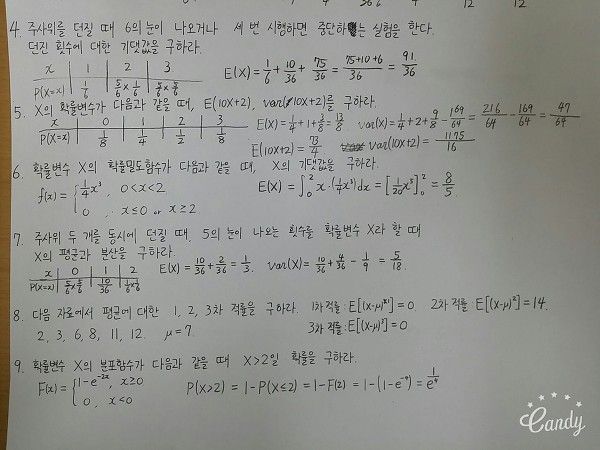 4. 주사위를 던질 때 6의 눈이 나오거나 세 번 시행하면 중단하는 실험을 한다.
던진 횟수에 대한 기댓값을 구하라.
x | 1 | 2 | 3
P(X=x) | 1/6 | 5/6 × 1/6 | 5/6 × 5/6
E(X) = 1/6 + 10/36 + 75/36 = (75+10+6)/36 = 91/36
5. X의 확률변수가 다음과 같을 때, E(10X+2), var(10X+2)를 구하라.
x | 0 | 1 | 2 | 3
P(X=x) | 1/8 | 1/4 | 1/2 | 1/8
E(X) = 1/4 + 1 + 3/8 = 13/8 var(X) = 1/4 + 2 + 9/8 - 169/64 = 216/64 - 169/64 = 47/64
E(10X+2) = 73/4 var(10X+2) = 1175/16
6. 확률변수 X의 확률밀도함수가 다음과 같을 때, X의 기댓값을 구하라.
f(x) = { 1/4 x³, 0<x<2
0, x≤0 or x≥2
E(X) = ∫₀² x·(1/4 x³)dx = [1/20 x⁵]₀² = 8/5.
7. 주사위 두 개를 동시에 던질 때. 5의 눈이 나오는 횟수를 확률변수 X라 할 때
X의 평균과 분산을 구하라.
x | 0 | 1 | 2
P(X=x) | 5/6 × 5/6 | 10/36 | 1/6 × 1/6
E(X) = 10/36 + 2/36 = 1/3. var(X) = 10/36 + 4/36 - 1/9 = 5/18.
8. 다음 자료에서 평균에 대한 1, 2, 3차 적률을 구하라. 1차적률: E[(X-μ)¹] = 0 2차 적률 E[(X-μ)²] = 14.
2, 3, 6, 8, 11, 12. μ = 7. 3차 적률: E[(X-μ)³] = 0
9. 확률변수 X의 분포함수가 다음과 같을 때 X>2일 확률을 구하라.
F(x) = { 1-e⁻²ˣ, x≥0
0, x≤0
P(X>2) = 1-P(X≤2) = 1-F(2) = 1-(1-e⁻⁴) = 1/e⁴
Candy